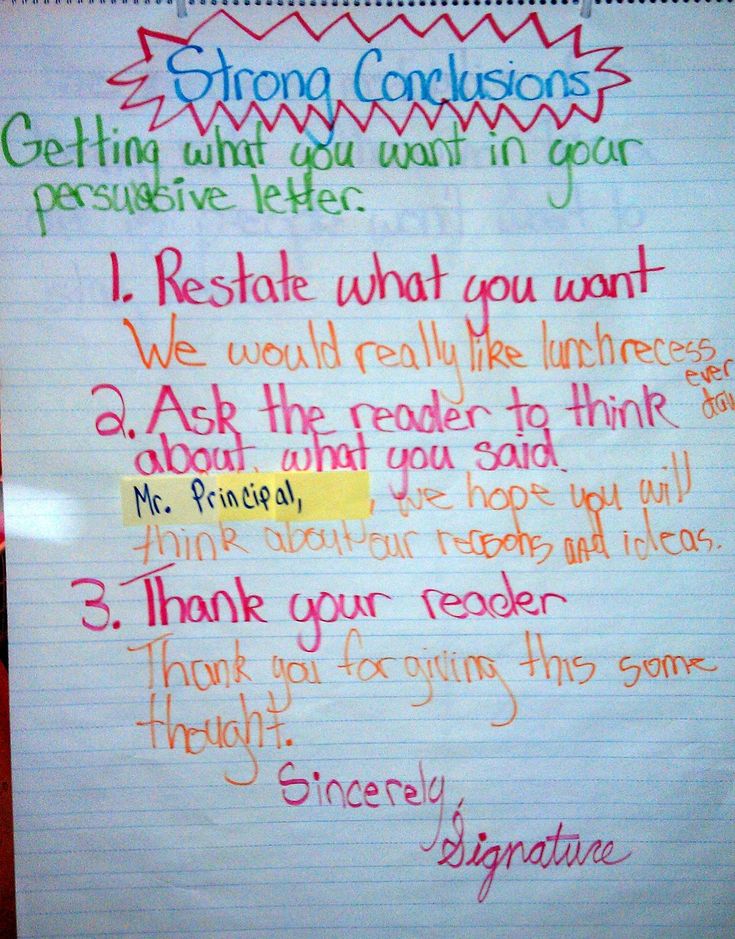 Strong Conclusions
Getting what you want in your
persuasive letter.
1. Restate what you want
We would really like lunch recess
ever
day
2. Ask the reader to think
about what you said.
Mr. Principal, , we hope you will
think about our reasons and ideas.
3. Thank your reader
Thank you for giving this some
thought.
Sincerely,
Signature